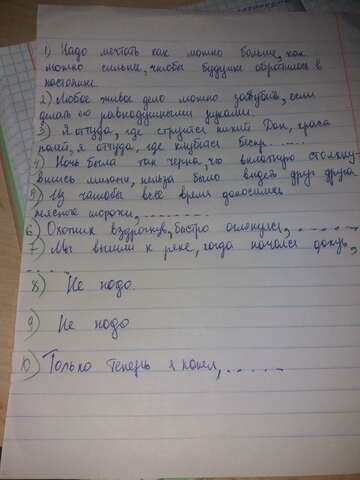 1) Надо мечтать как можно больше, как
можно сильнее, чтобы будущее обратилось в
настоящее.
2) Любое живое дело можно загубить, если
делать его равнодушными руками.
3) Я оттуда, где струится тихий Дон, краса
полей, я оттуда, где клубится бескр.......
4) Ночь была так черна, что вплотную столкну-
вшись лицами, нельзя было видеть друг друга
5) Из чащобы всё время доносились
неясные шорохи, --------
6) Охотник вздрогнув, быстро оглянулся, ------
7) Мы вышли к реке, когда начался дождь,
-----
8) Не надо.
9) Не надо
10) Только теперь я понял, .......